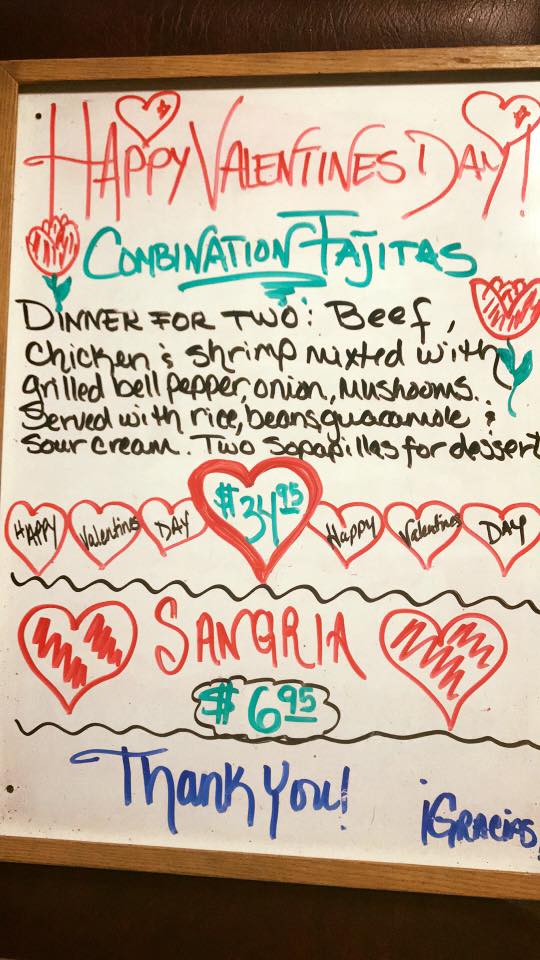 HAPPY VALENTINES DAY!
COMBINATION FAJITAS
DINNER FOR TWO: Beef,
chicken & shrimp mixted with
grilled bell pepper, onion, Mushooms.
Served with rice, beans, guacamole &
sour cream. Two Sopapillas for dessert
HAPPY Valentines DAY $34.95 Happy Valentines DAY
SANGRIA
$6.95
Thank You!
¡GRACIAS!